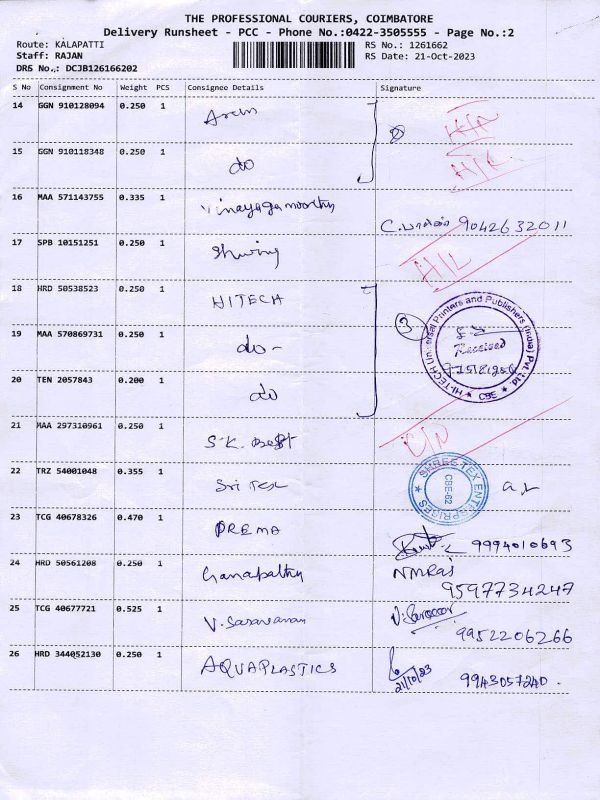 THE PROFESSIONAL COURIERS, COIMBATORE
Delivery Runsheet - PCC - Phone No.:0422-3505555 - Page No.:2
Route: KALAPATTI RS No.: 1261662
Staff: RAJAN RS Date: 21-Oct-2023
DRS No.: DCJB126166202
S No Consignment No Weight PCS Consignee Details Signature
14 GGN 910128094 0.250 1
15 GGN 910118348 0.250 1 do
16 MAA 571143755 0.335 1 Vinayaga moorthy C. 9042632011
17 SPB 10151251 0.250 1
18 HRD 50538523 0.250 1 HITECH
19 MAA 570869731 0.250 1 do- 3 HI-TECH Universal Printers and Publishers (India) Pvt. Ltd. Received CBE
20 TEN 2057843 0.200 1 do
21 MAA 297310961 0.250 1 S.K.
22 TRZ 54001048 0.355 1 Sri Tex SHREE TEX ENTERPRISES CBE-62
23 TCG 40678326 0.470 1 PREMA 9994010693
24 HRD 50561208 0.250 1 Ganapathy NMRaj
9597734247
25 TCG 40677721 0.525 1 V. Saravanan
9952206266
26 HRD 344052130 0.250 1 AQUAPLASTICS 21/10/23 9943057240.